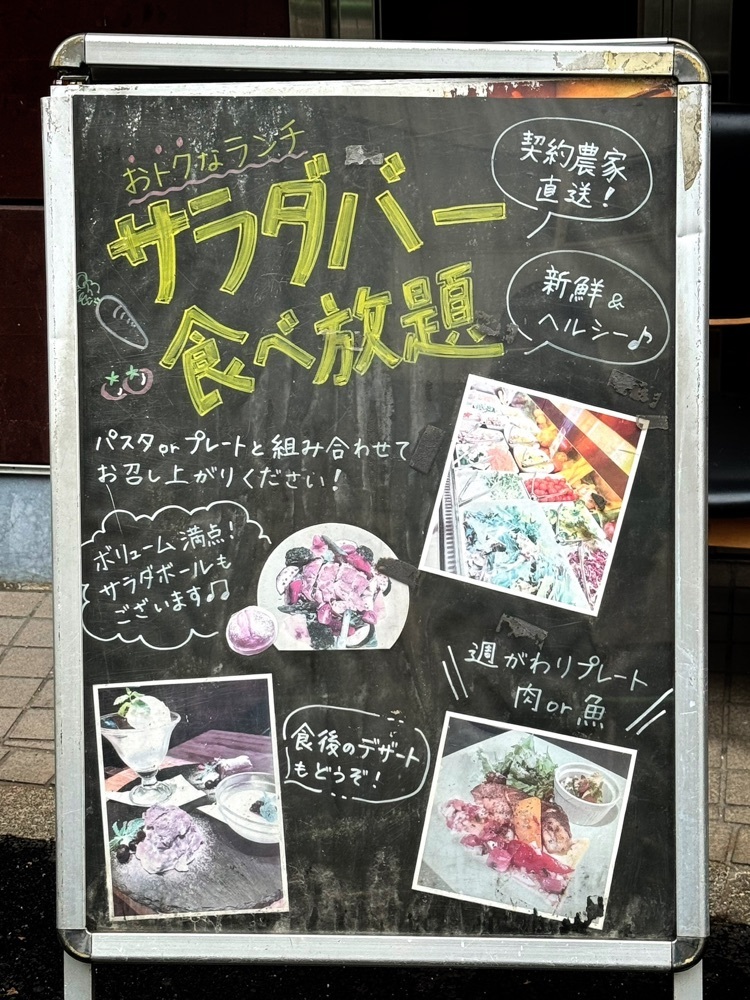 おトクなランチ
サラダバー
食べ放題
契約農家
直送!
新鮮&
ヘルシー♪
パスタorプレートと組み合わせて
お召し上がりください!
ボリューム満点!
サラダボールも
ございます♫
週がわりプレート
肉or魚
食後のデザート
もどうぞ!